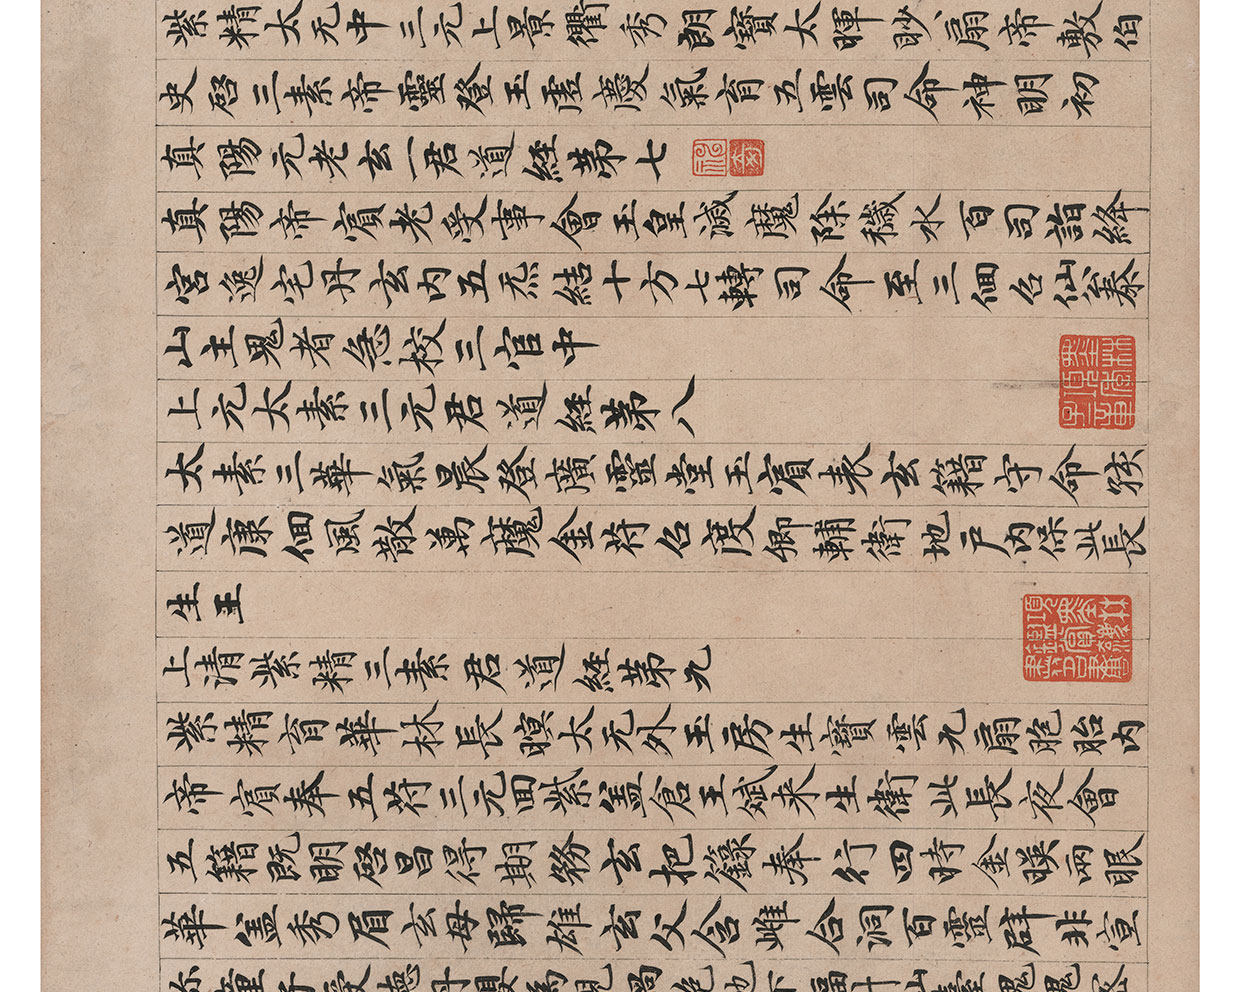 紫精太元中三元上景衢秀朗寶太暉眇扇帝敷伯
史啓三素帝靈登玉虗慶氣育五雲司命神明初
真陽元老玄一君道經第七
真陽帝賔老受事會玉皇滅魔除穢水百司詣絳
宮逸宅丹玄内五炁結十方七轉司命至三佪名仙泰
山主鬼者急校三官中
上元太素三元君道經第八
太素三華氣晨登廣靈堂玉賔表玄籍守命
道康佪風散萬魔金符召度卿輔衛地戸内保此長
生王
上清紫精三素君道經第九
紫精育華林長暝太无外玉房生寶雲九扇胞胎内
帝賔奉五符三元回紫盖倉王斌来生衛此長夜會
五籍既明啓昌得期務玄把籙奉行四時金暎兩眼
華盖秀眉玄母歸雄玄父含雌合洞百靈辟非